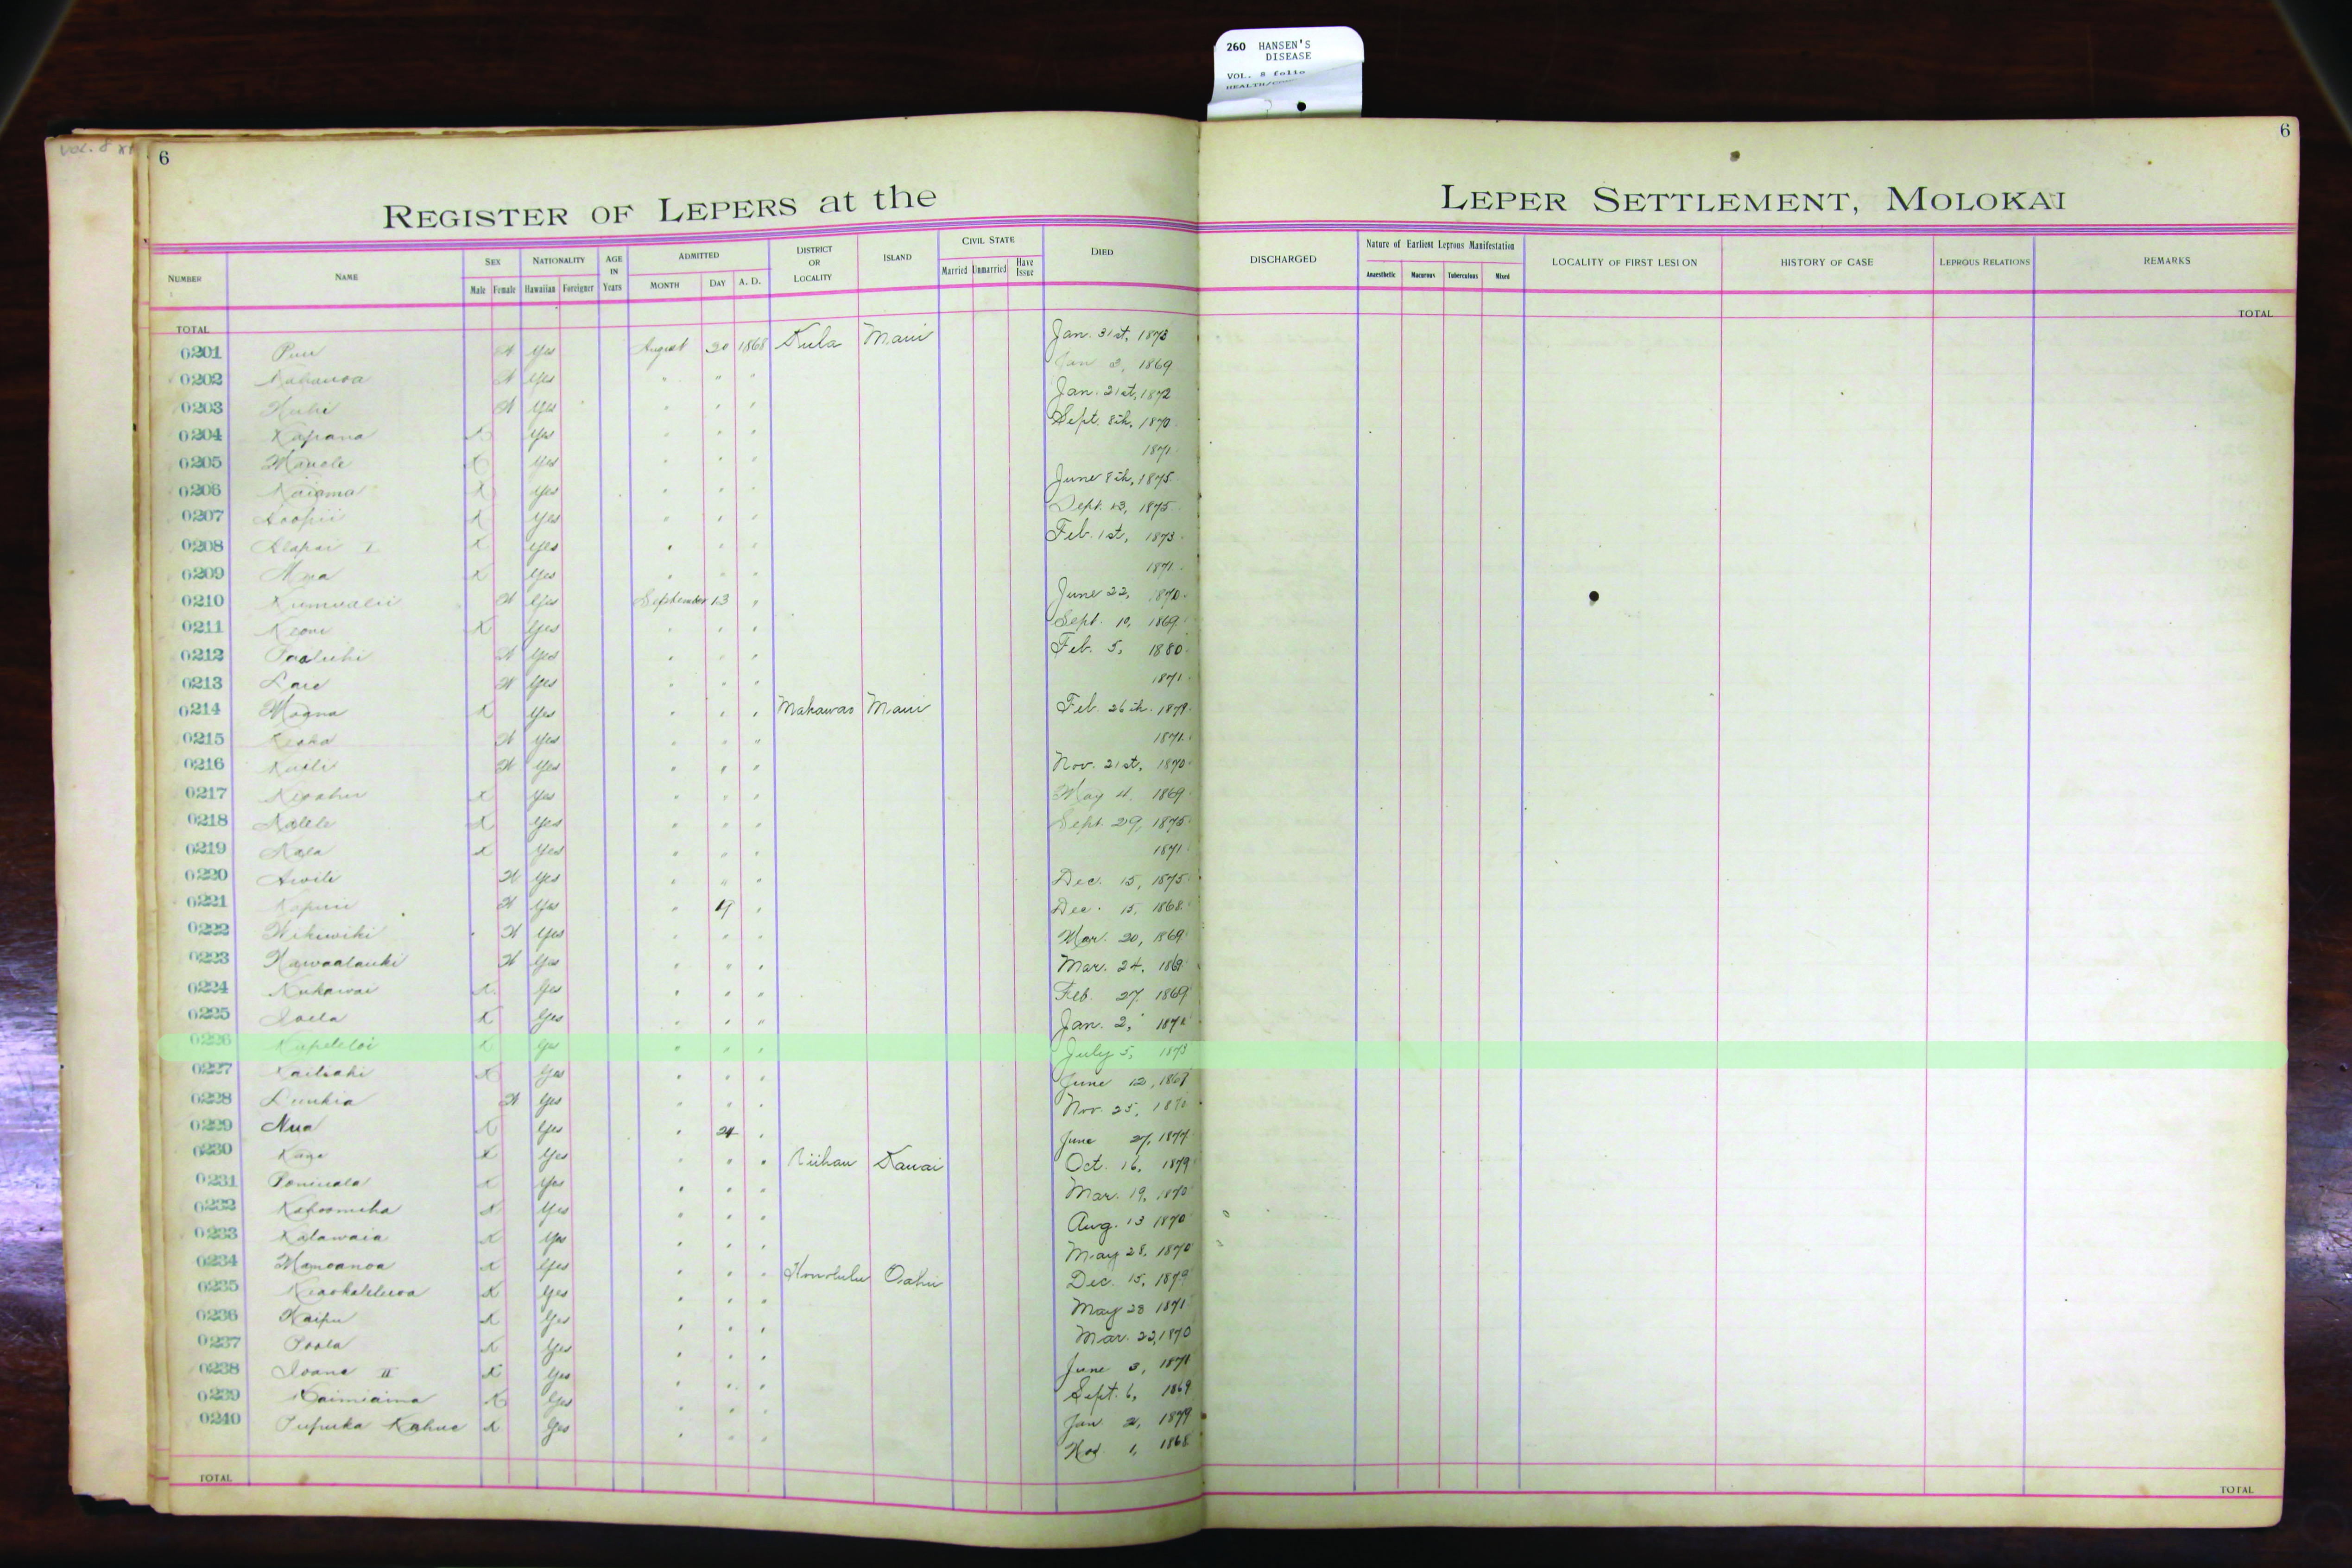 260 HANSEN'S
DISEASE
VOL. 8 folio
6
6
REGISTER OF LEPERS at the LEPER SETTLEMENT, MOLOKAI
NUMBER NAME SEX Male Female NATIONALITY Hawaiian Foreigner AGE IN Years ADMITTED MONTH DAY A. D. DISTRICT OR LOCALITY ISLAND CIVIL STATE Married Unmarried Have Issue DIED DISCHARGED Nature of Earliest Leprous Manifestation Anaesthetic Macurous Tuberculous Mixed LOCALITY OF FIRST LESION HISTORY OF CASE LEPROUS RELATIONS REMARKS
TOTAL TOTAL
0201 Puu Yes August 20 1868 Kula Maui Jan. 31st, 1873
0202 Kahauoa Yes " " " Jan 2, 1869
0203 Yes " " " Jan. 21st, 1872
0204 Kapana X Yes " " " Sept. 8th, 1870
0205 Manole X Yes " " " 1871
0206 Kaiama X Yes " " " June 8th, 1875
0207 Koopii X Yes " " " Sept. 13, 1875
0208 Alapai I X Yes " " " Feb. 1st, 1873
0209 X Yes " " " 1871
0210 Kumualii Yes September 13 " June 22, 1870
0211 Keoni X Yes " " " Sept. 10, 1869
0212 Paaluhi Yes " " " Feb. 5, 1880
0213 Yes " " " 1871
0214 Moana X Yes " " " Makawao Maui Feb. 26th. 1879
0215 Yes " " " 1871
0216 Kaili Yes " " " Nov. 21st, 1870
0217 X Yes " " " May 4, 1869
0218 Kalele X Yes " " " Sept. 29, 1875
0219 Kaia X Yes " " " 1871
0220 Awili Yes " " " Dec. 15, 1875
0221 Kapuu Yes " 19 " Dec. 15, 1868
0222 Wikiwiki Yes " " " Mar. 20, 1869
0223 Kawaalauki Yes " " " Mar. 24, 186
0224 Nukawai X Yes " " " Feb. 27, 1869
0225 Ioela X Yes " " " Jan. 2,
0226 X Yes " " " July 5, 1873
0227 Kailiahi X Yes " " " June 12, 1869
0228 Yes " " " Nov. 25, 1870
0229 Nua X Yes " 24 " June 27, 1877
0230 X Yes " " " Niihau Kauai Oct. 16, 1879
0231 Poniuala X Yes " " " Mar. 19, 1870
0232 Kahoomiha X Yes " " " Aug. 13 1870
0233 Kalawaia X Yes " " " May 28, 1870
0234 Mamoanoa X Yes " " " Honolulu Oahu Dec. 15, 1879
0235 Keaokaleluoa X Yes " " " May 28 1871
0236 Kaipu X Yes " " " Mar. 22, 1870
0237 Poola X Yes " " " June 3, 1871
0238 Ioane II X Yes " " " Sept. 6, 1869
0239 Kaimiaina X Yes " " " Jan 2, 1879
0240 Pupuka Kahue X Yes " " " Nov 1, 1868
TOTAL TOTAL